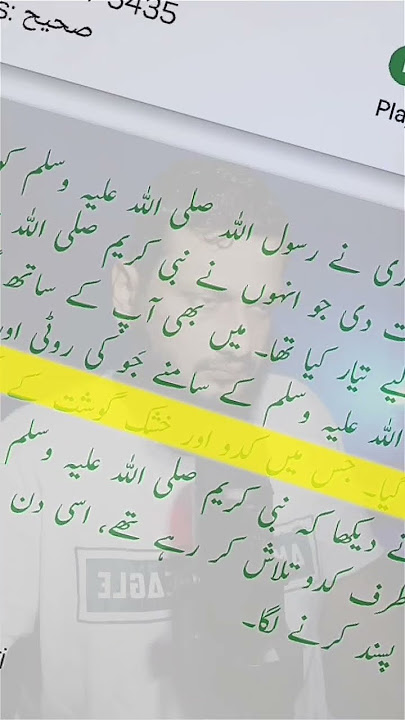 5435
صحیح :s
Pla
ری نے رسول اللہ صلی اللہ علیہ وسلم کو
ت دی جو انہوں نے نبی کریم صلی اللہ
لیے تیار کیا تھا۔ میں بھی آپ کے ساتھ
اللہ علیہ وسلم کے سامنے جَو کی روٹی اور
گیا۔ جس میں کدو اور خشک گوشت کے
نے دیکھا کہ نبی کریم صلی اللہ علیہ وسلم
طرف کدو تلاش کر رہے تھے، اسی دن
پسند کرنے لگا۔
EAGLE
ri